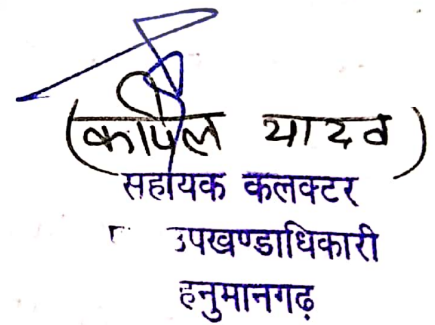 (कपिल यादव)
सहायक कलक्टर
उपखण्डाधिकारी
हनुमानगढ़